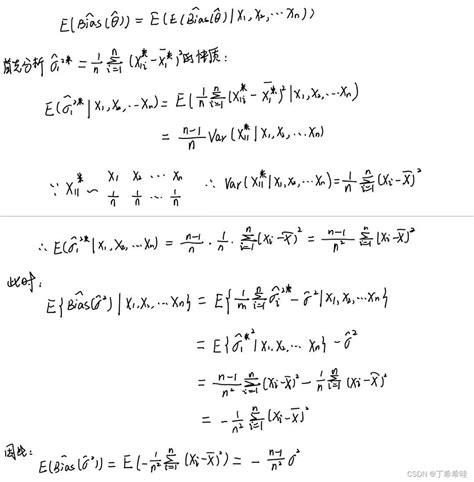 E(Bias^(θ̂)) = E(E(Bias^(θ̂)|X₁,X₂,⋯Xₙ))
首先分析 σ̂₁²* = 1/n Σᵢ₌₁ⁿ (X₁ᵢ* - X̄₁*)² 的性质:
E(σ̂₁²*|X₁,X₂,⋯Xₙ) = E(1/n Σᵢ₌₁ⁿ (X₁ᵢ* - X̄₁*)²|X₁,X₂,⋯Xₙ)
= (n-1)/n Var(X₁₁*|X₁,X₂,⋯Xₙ)
∵ X₁₁* ~ X₁ X₂ ⋯ Xₙ ∴ Var(X₁₁*|X₁,X₂,⋯Xₙ) = 1/n Σᵢ₌₁ⁿ (Xᵢ-X̄)²
1/n 1/n ⋯ 1/n
∴ E(σ̂₁²*|X₁,X₂,⋯Xₙ) = (n-1)/n · 1/n · Σᵢ₌₁ⁿ (Xᵢ-X̄)² = (n-1)/n² Σᵢ₌₁ⁿ (Xᵢ-X̄)²
此时:
E{Bias^(σ̂²)|X₁,X₂,⋯Xₙ} = E{1/m Σᵢ₌₁ⁿ σ̂ᵢ²* - σ̂²|X₁,X₂,⋯Xₙ}
= E{σ̂₁*²|X₁,X₂,⋯Xₙ} - σ̂²
= (n-1)/n² Σᵢ₌₁ⁿ (Xᵢ-X̄)² - 1/n Σᵢ₌₁ⁿ (Xᵢ-X̄)²
= -1/n² Σᵢ₌₁ⁿ (Xᵢ-X̄)²
因此:
E(Bias^(σ̂²)) = E(-1/n² Σᵢ₌₁ⁿ (Xᵢ-X̄)²) = -(n-1)/n² σ²
CSDN @丁希希哇